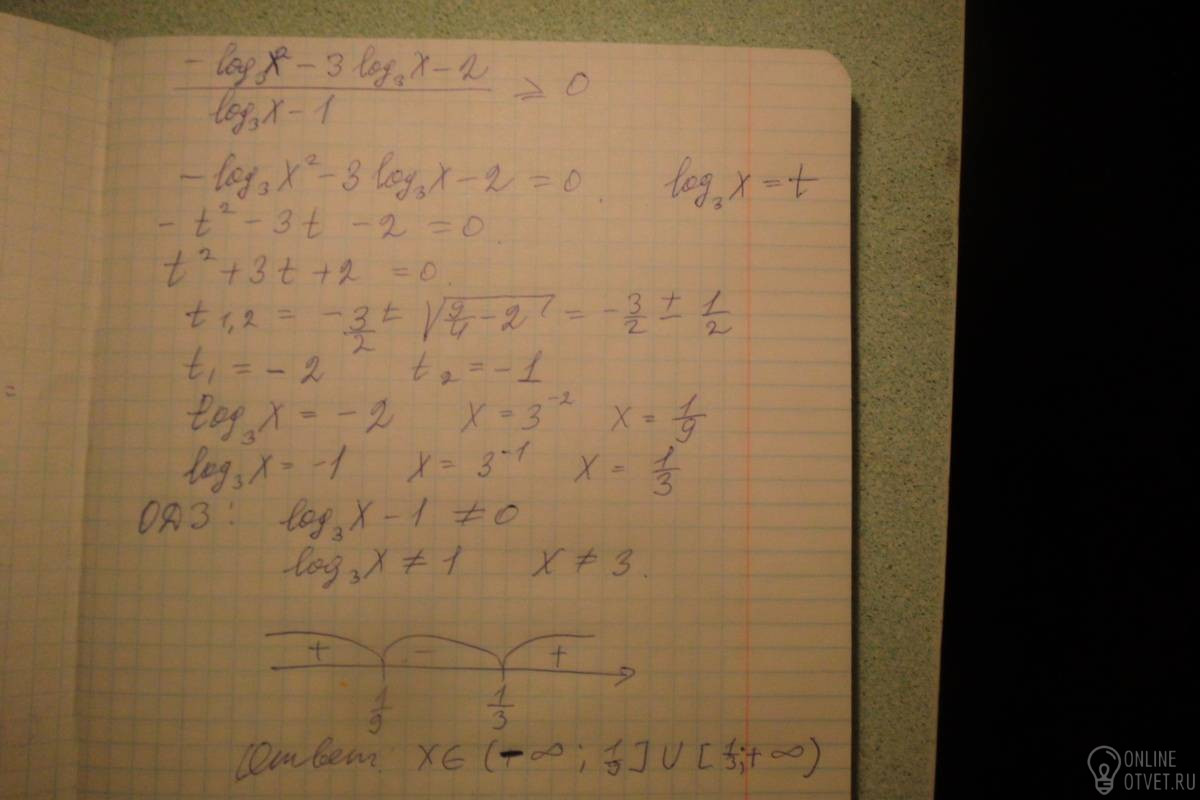 -log₃x² - 3 log₃x - 2
log₃x - 1
≥ 0
-log₃x² - 3 log₃x - 2 = 0. log₃x = t
-t² - 3t - 2 = 0.
t² + 3t + 2 = 0.
t₁,₂ = -3/2 ± √(9/4 - 2) = -3/2 ± 1/2
t₁ = -2 t₂ = -1
log₃x = -2 x = 3⁻² x = 1/9
log₃x = -1 x = 3⁻¹ x = 1/3
ОДЗ: log₃x - 1 ≠ 0
log₃x ≠ 1 x ≠ 3.
+ - +
1/9 1/3
Ответ: x ∈ (-∞; 1/9] ∪ [1/3; +∞)
=
ONLINE
OTVET.RU